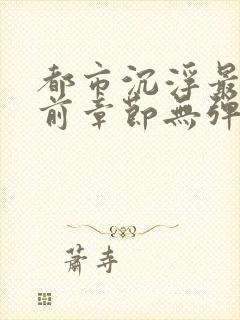 都市沉浮最
前章節無彈
蕭寺